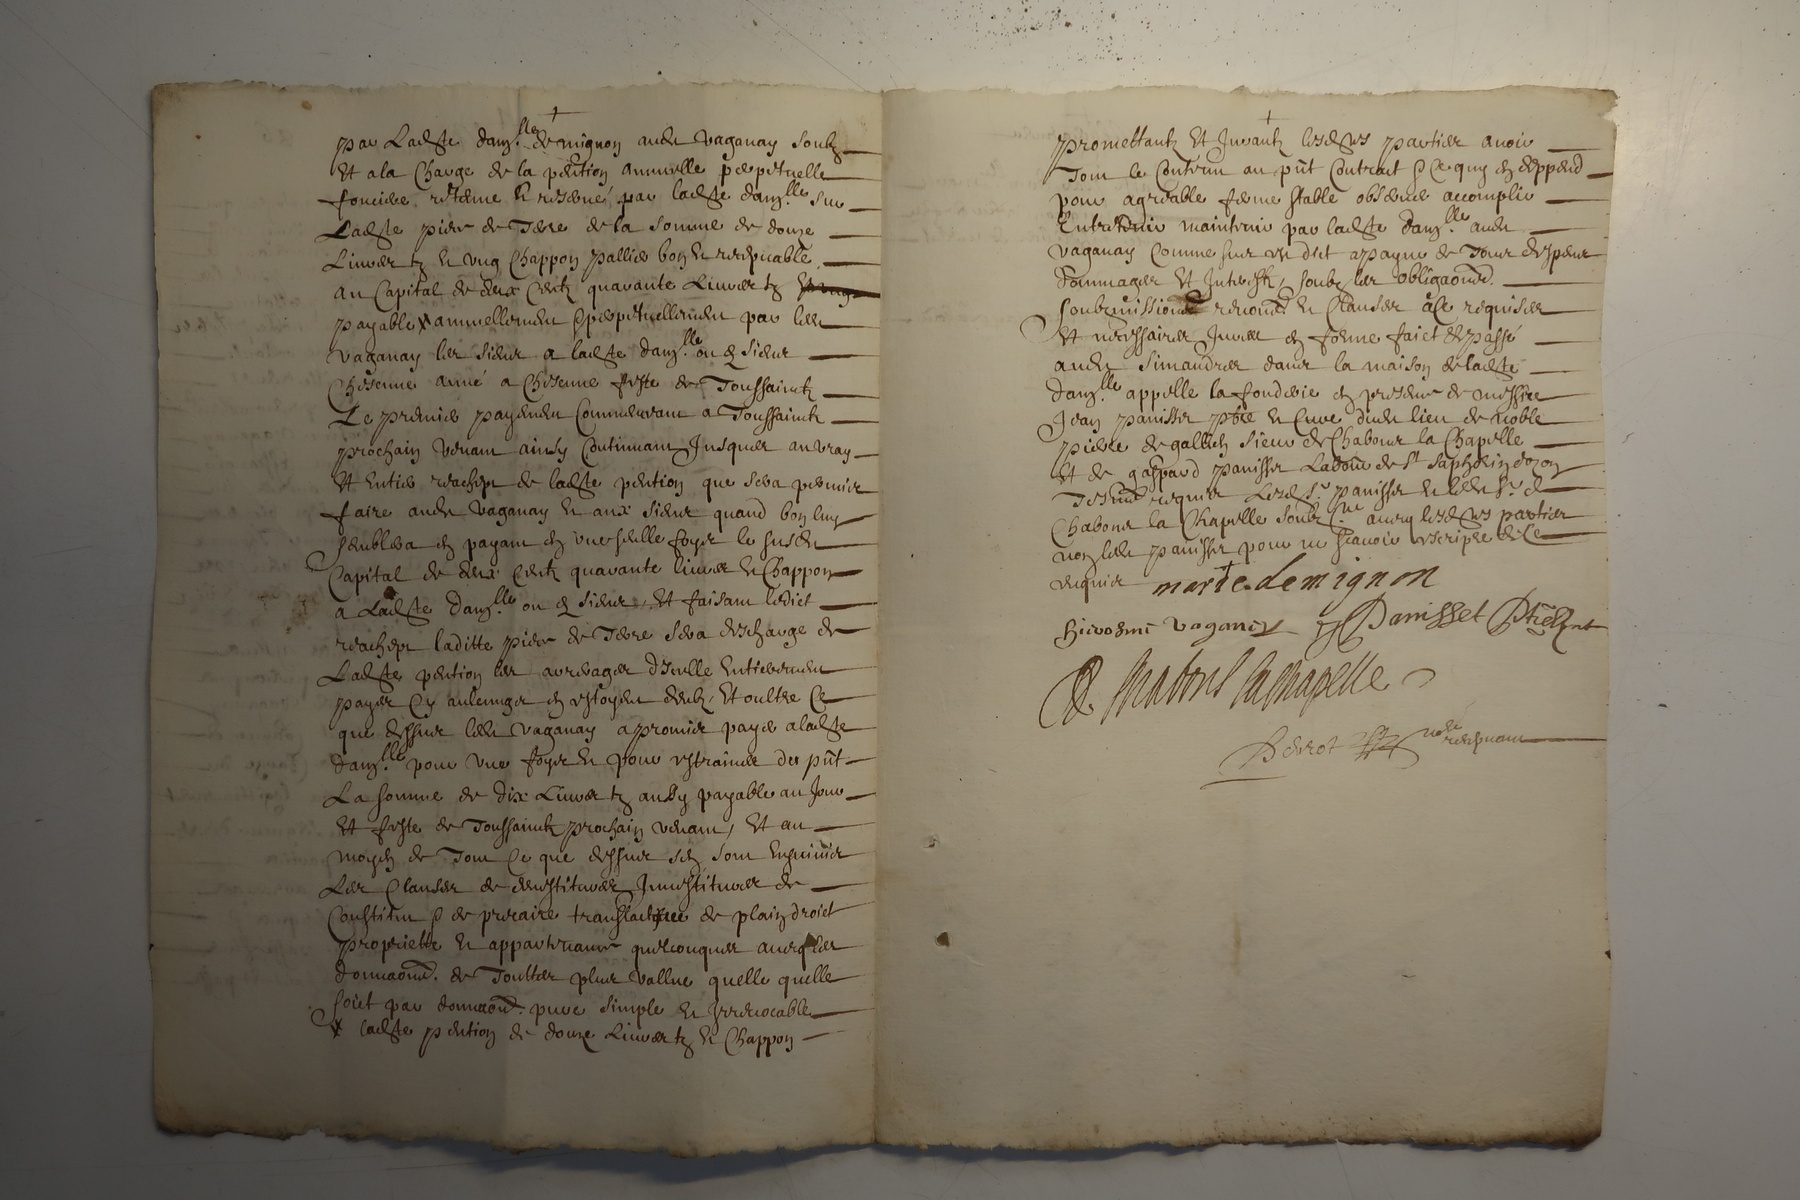 par Ladte damlle de mignon audt vaganay soubz
Et a la charge de la pention annuelle perpetuelle
fonciere retenue et reservé par ladte damlle sur
Ladte piece de Terre de la somme de douze
Livres tz et ung Chappon pallier bon et recepvable
au Capital de deux Centz quarante Livres tz
payable annuellement & perpetuellement par ledt
vaganay les siens a ladte damlle ou es siens
Chesenne année a Chesenne feste de Toussainctz
Le premier payement Commencant a Toussainctz
prochain venant ainsy Continuant Jusques au vray
Et Entier reachept de ladte pention que sera permis
faire audt vaganay et aux siens quand bon luy
semblera en payant en une seulle foys le susdt
Capital de deux Centz quarante livres et Chappon
a Ladte damlle ou es siens, Et faisant ledict
reachept laditte piece de Terre sera deschargé de
Ladte pention les arrerages d'icelle Entierement
payes et oultre Ce
que dessus ledt vaganay a promis payer a ladte
damlle pour une foys et pour estraines des pnt
La somme de dix Livres tz aussy payable au Jour
Et feste de Toussainctz prochain venant, Et au
moyen de Tout Ce que dessus sen sont
Les Clauses de devestitures Jnvestitures de
Constitut & de precaire translatifves de plain droict
proprietté et appartenance quelconques avecq les
donnaons. de Touttes plus vallue quelle quelle
soict par donnaon. pure simple et Irrevocable
x ladte pention de douze Livres tz et Chappon
promettantz Et Jurantz lesdtes parties avoir
Tout le Contenu au pnt Contrat & Ce quy en deppend
pour agreable ferme stable observer accomplir
Entretenir maintenir par ladte damlle audt
vaganay Comme sur est dict a payne de Tous despens
dommages Et Interestz, soubz les obligaons.
soubzmissions renons. et Clauses a Ce requises
Et necessaires Juree en forme faict & passé
audt simandres dans la maison de ladte
damlle appelle la fonderie en presence de messire
Jean panisset pbre et Cure dudt lieu de noble
pierre de gallien sieur de Chabons la Chapelle
Et de gaspard panisset Labour de St saphorin dozon
Tesmoins requis Lesd. Sr. panisset et ledt Sr. de
Chabons la Chapelle soubz sne avecq lesdtes parties
non ledt panisset pour ne scavoir escripre de Ce
requis marte de mignon
hierosme vaganey Panisset
De Chabons la chapelle
Perrot notre recepvant